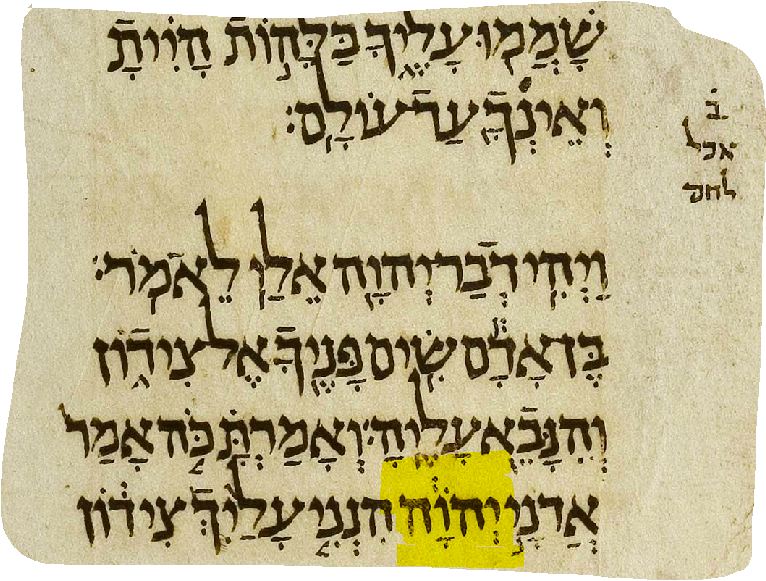 שָׁמְמוּ עָלֶיךָ בַּלָּהוֹת הָיִיתָ
וְאֵינְךָ עַד עוֹלָם׃
וַיְהִי דְבַר יְהוָה אֵלַי לֵאמֹר׃
בֶּן אָדָם שִׂים פָּנֶיךָ אֶל צִידוֹן
וְהִנָּבֵא עָלֶיהָ׃ וְאָמַרְתָּ כֹּה אָמַר
אֲדֹנָי יְהֹוִה הִנְנִי עָלַיִךְ צִידוֹן
ב
אכל
לחם